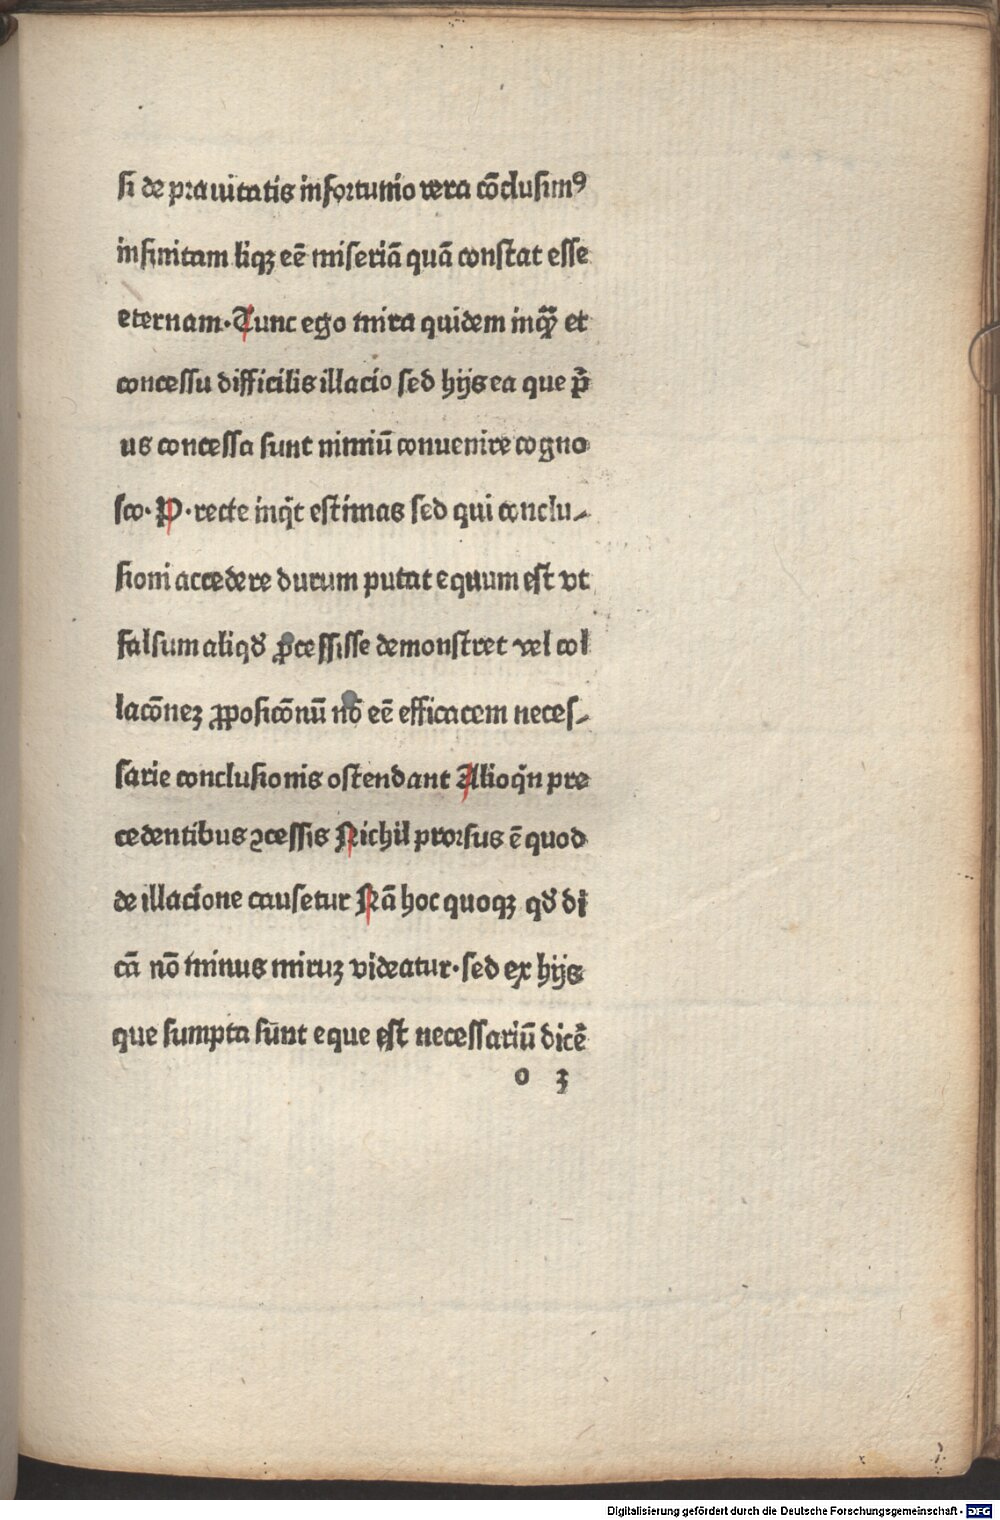 si de prauitatis infortunio vera cōclusimꝰ
infinitam liqꝫ eē miseriā quā constat esse
eternam. Tunc ego mira quidem inqͣꝫ et
concessu difficilis illacio sed hijs ea que p̄
us concessa sunt nimiū conuenire cogno
sco. P. recte inqͥt estimas sed qui conclu-
sioni accedere durum putat equum est vt
falsum aliqđ p̄cessisse demonstret vel col
lacōneꝫ ꝓposicōnū nō eē efficacem neces-
sarie conclusionis ostendant Alioqͥn pre
cedentibus ꝯcessis Nichil prorsus ē quod
de illacione causetur Nā hoc quoqꝫ qđ di
cā nō minus miruꝫ videatur. sed ex hijs
que sumpta sunt eque est necessariū dicē
o 3
Digitalisierung gefördert durch die Deutsche Forschungsgemeinschaft - DFG